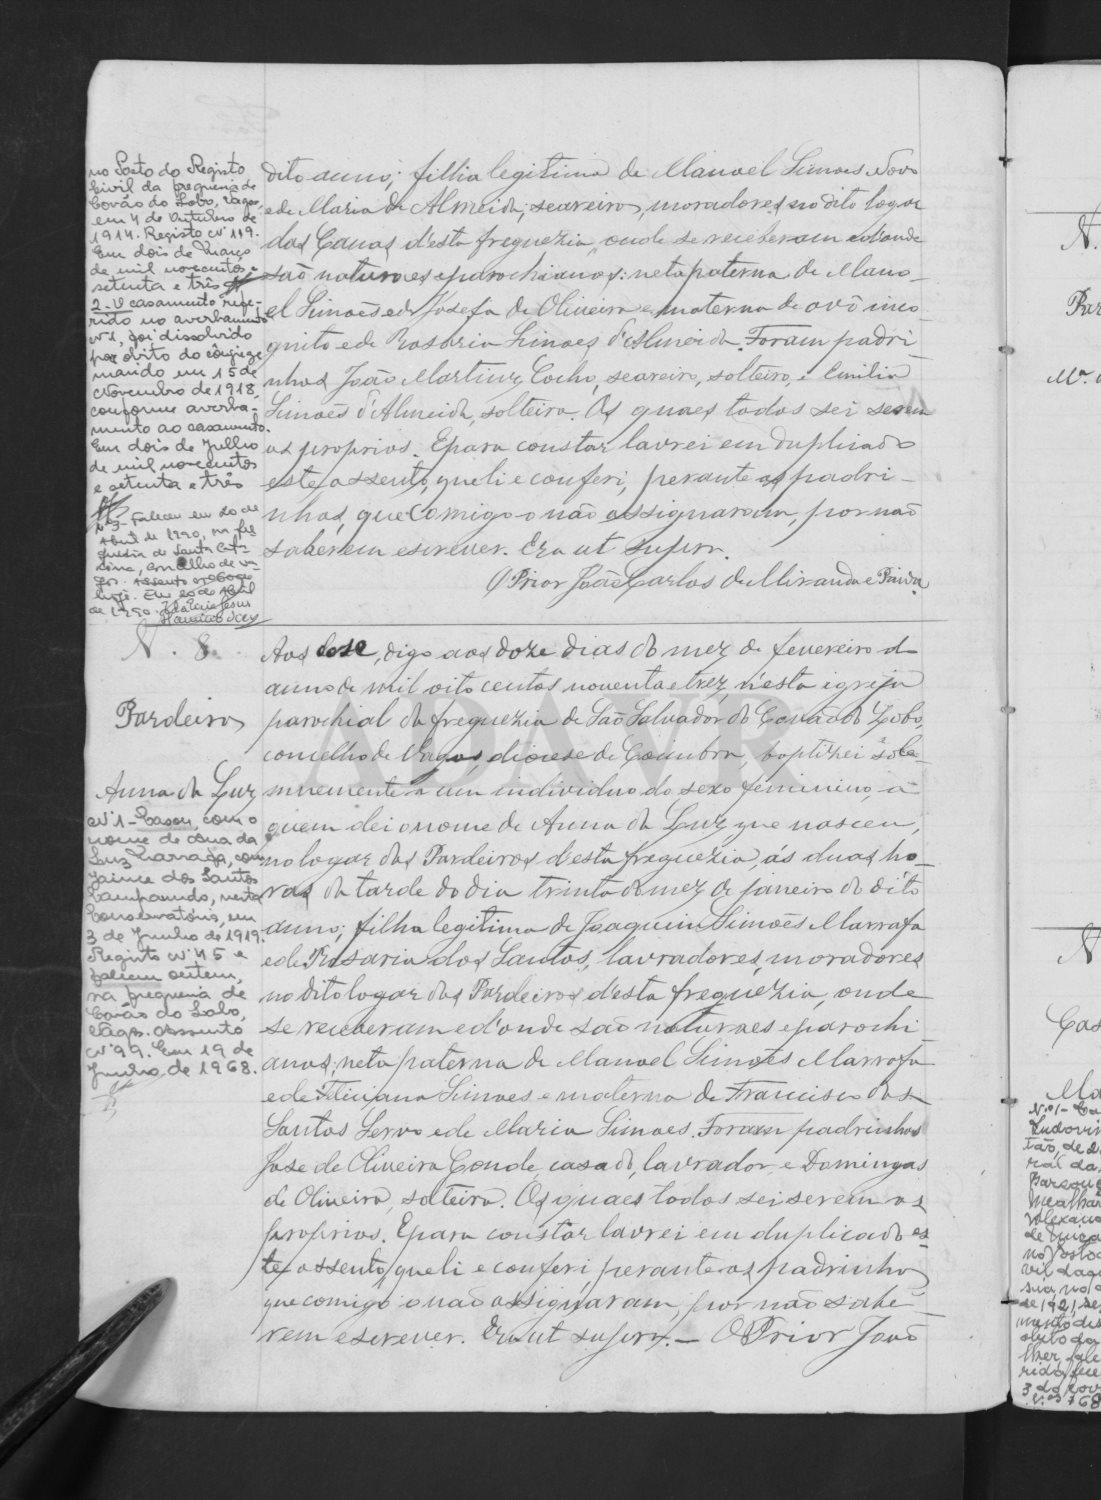 no Posto do Registo
Civil da freguesia de
Covão do Lobo, Vagos,
em 4 de Outubro de
1914. Registo Nº 119.
Em dois de Março
de mil novecentos e
setenta e três
2-O casamento refe-
rido no averbamento
nº1, foi dissolvido
por óbito do cônjuge
marido em 15 de
Novembro de 1918,
conforme averba-
mento ao casamento.
Em dois de Julho
de mil novecentos
e setenta e três
Nº3- Faleceu em 20 de
Abril de 1990, na fre
guesia de Santa Cat-
rina, concelho de Va-
gos. Assento nº
hoje. Em 20 de Abril
de 1990.
dito anno; filha legitima de Manoel Simoes Novo
e de Maria de Almeida, seareiros, moradores no dito logar
das Canas d'esta freguezia, onde se receberam e d'onde
são naturaes e parochianos: neta paterna de Mano-
el Simões e de Josefa de Oliveira e materna de avô inco-
gnito e de Rosaria Simoes d'Almeida. Foram padri-
nhos João Martins Cocho, seareiro, solteiro, e Emilia
Simoes d'Almeida, solteira. Os quaes todos sei serem
os proprios. E para constar lavrei em duplicado
este assento, que li e conferi, perante os padri-
nhos, que comigo o não assignaram, por não
saberem escrever. Era ut supra.
O Prior João Carlos de Miranda e Paiva
N. 8.
Pardeiros
Anna da Luz
Nº1- Casou, com o
nome de Ana da
Luz Marrafa, com
Jaime dos Santos
Campanudo, nesta
Conservatória, em
3 de Junho de 1919.
Registo Nº 45 e
faleceu ontem,
na freguesia de
Covão do Lobo,
Vagos. Assento
Nº 99. Em 19 de
Junho de 1968.
Aos dose, digo aos doze dias do mez de fevereiro do
anno de mil oito centos noventa e trez, n'esta igreja
parochial da freguezia de São Salvador do Covão do Lobo,
concelho de Vagos, diocese de Coimbra, baptizei sole-
mnemente a um individuo do sexo feminino, a
quem dei o nome de Anna da Luz que nasceu,
no logar dos Pardeiros d'esta freguezia, ás duas ho-
ras da tarde do dia trinta do mez de janeiro do dito
anno; filha legitima de Joaquim Simoes Marrafa
e de Rosaria dos Santos, lavradores, moradores
no dito logar dos Pardeiros d'esta freguezia, onde
se receberam e d'onde são naturaes e parochi
anos; neta paterna de Manoel Simões Marrafa
e de Feliciana Simoes e materna de Francisco dos
Santos Servo e de Maria Simoes. Foram padrinhos
Jose de Oliveira Conde, casado, lavrador, e Domingas
de Oliveira, solteira. Os quaes todos sei serem os
proprios. E para constar lavrei em duplicado es-
te assento, que li e conferi, perante os padrinhos
que comigo o não assignaram, por não sabe-
rem escrever. Era ut supra.— O Prior João
ADAVR
N.
Par
Mª
N
Cas
Ma